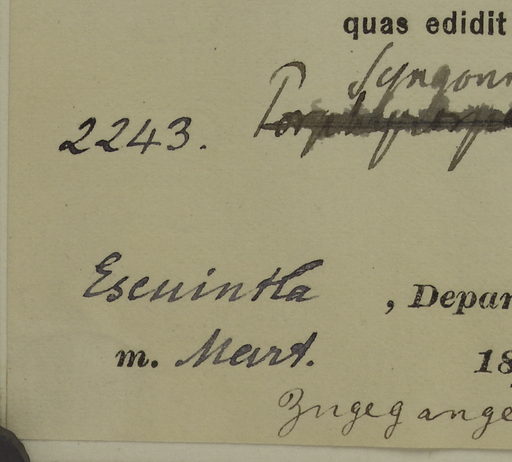 quas edidit
Syngon
2243.
Escuintla , Depar
m. Mart. 18
Zugegange